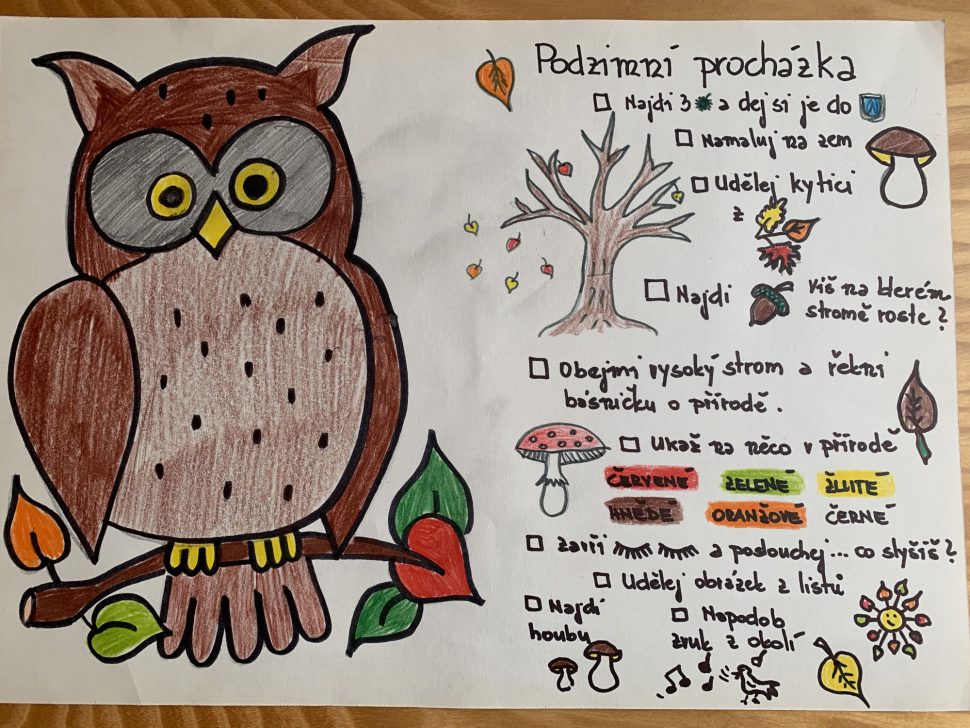 Podzimní procházka
Najdi 3 a dej si je do
Namaluj na zem
Udělej kytici
z
Najdi
víš na kterém
stromě roste?
Obejmi vysoký strom a řekni
básničku o přírodě.
Ukaž na něco v přírodě
ČERVENÉ ZELENÉ ŽLUTÉ
HNĚDÉ ORANŽOVÉ ČERNÉ
Zavři a poslouchej... co slyšíš?
Udělej obrázek z listů
Najdi
houby
Napodob
zvuk z okolí